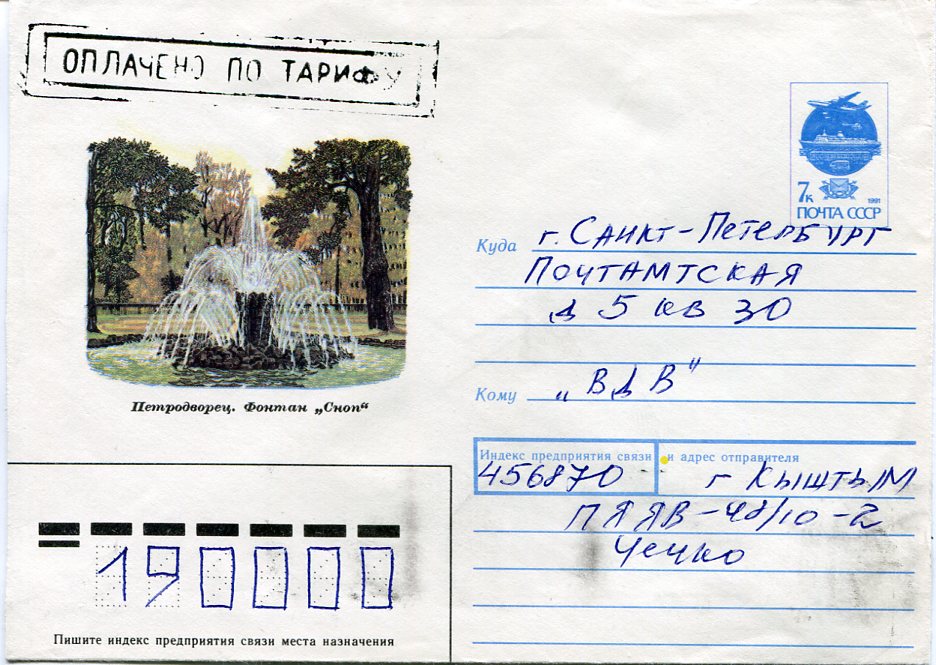 ОПЛАЧЕНО ПО ТАРИФУ
7к
1991
ПОЧТА СССР
Куда г. САНКТ-ПЕТЕРБУРГ
ПОЧТАМТСКАЯ
д 5 кв 30
Кому „ВДВ"
Петродворец. Фонтан „Сноп“
Индекс предприятия связи и адрес отправителя
456870 г Кыштым
-2
Чечко
190000
Пишите индекс предприятия связи места назначения